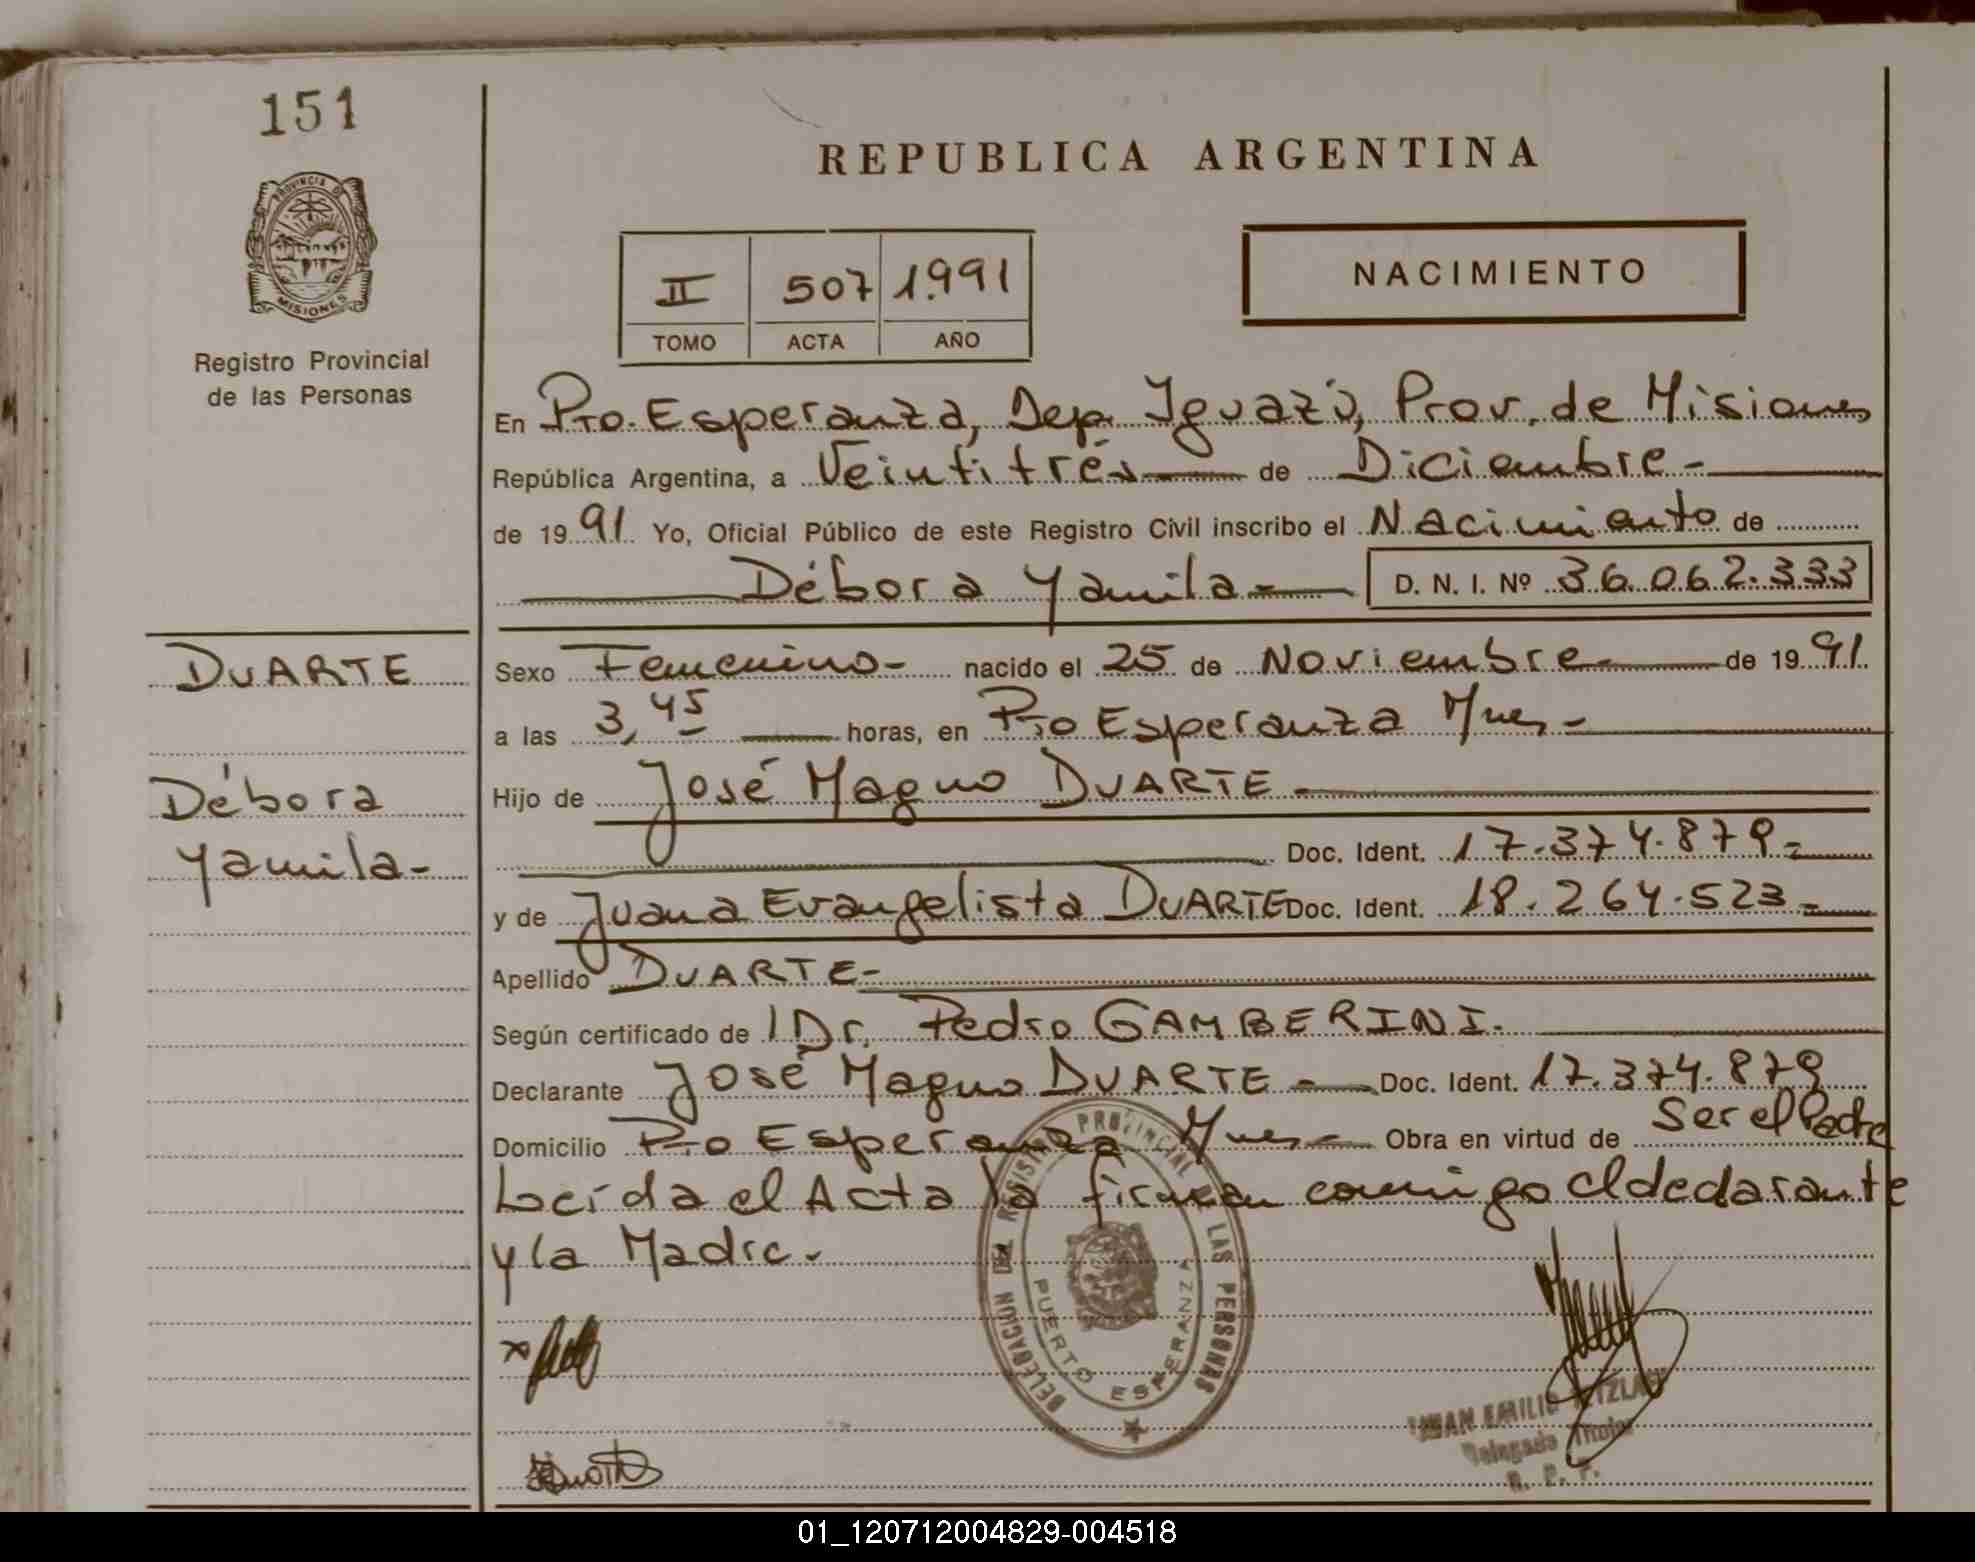 151
PROVINCIA DE
MISIONES
Registro Provincial
de las Personas
REPUBLICA ARGENTINA
II 507 1.991
TOMO ACTA AÑO
NACIMIENTO
En Pto. Esperanza, Dep. Iguazú, Prov. de Misiones
República Argentina, a Veintitrés de Diciembre
de 1991 Yo, Oficial Público de este Registro Civil inscribo el Nacimiento de
Débora Yamila D. N. I. Nº 36.062.333
DUARTE
Débora
Yamila-
Sexo Femenino- nacido el 25 de Noviembre de 1991
a las 3,45 horas, en Pto Esperanza Mnes-
Hijo de José Magno DUARTE
Doc. Ident. 17.374.879-
y de Juana Evangelista DUARTE Doc. Ident. 18.264.523-
Apellido DUARTE-
Según certificado de l Dr. Pedro GAMBERINI.
Declarante José Magno DUARTE Doc. Ident. 17.374.879
Domicilio Pto Esperanza Mnes- Obra en virtud de Ser el Padre
Leída el Acta la firman conmigo el declarante
y la Madre.
DELEGACION DEL REGISTRO PROVINCIAL LAS PERSONAS
PUERTO ESPERANZA
JUAN EMILIO
Delegado Titular
R. P. P.
01_120712004829-004518